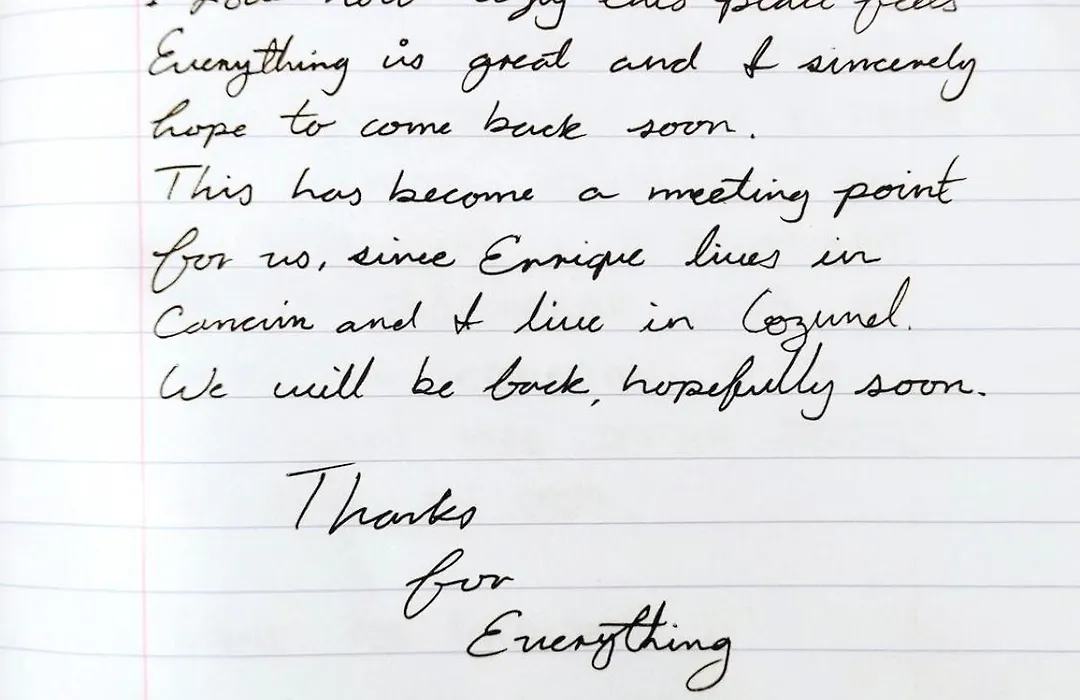 I love how cozy this place feels
Everything is great and I sincerely
hope to come back soon.
This has become a meeting point
for us, since Enrique lives in
Cancún and I live in Cozumel.
We will be back, hopefully soon.
Thanks
for
Everything